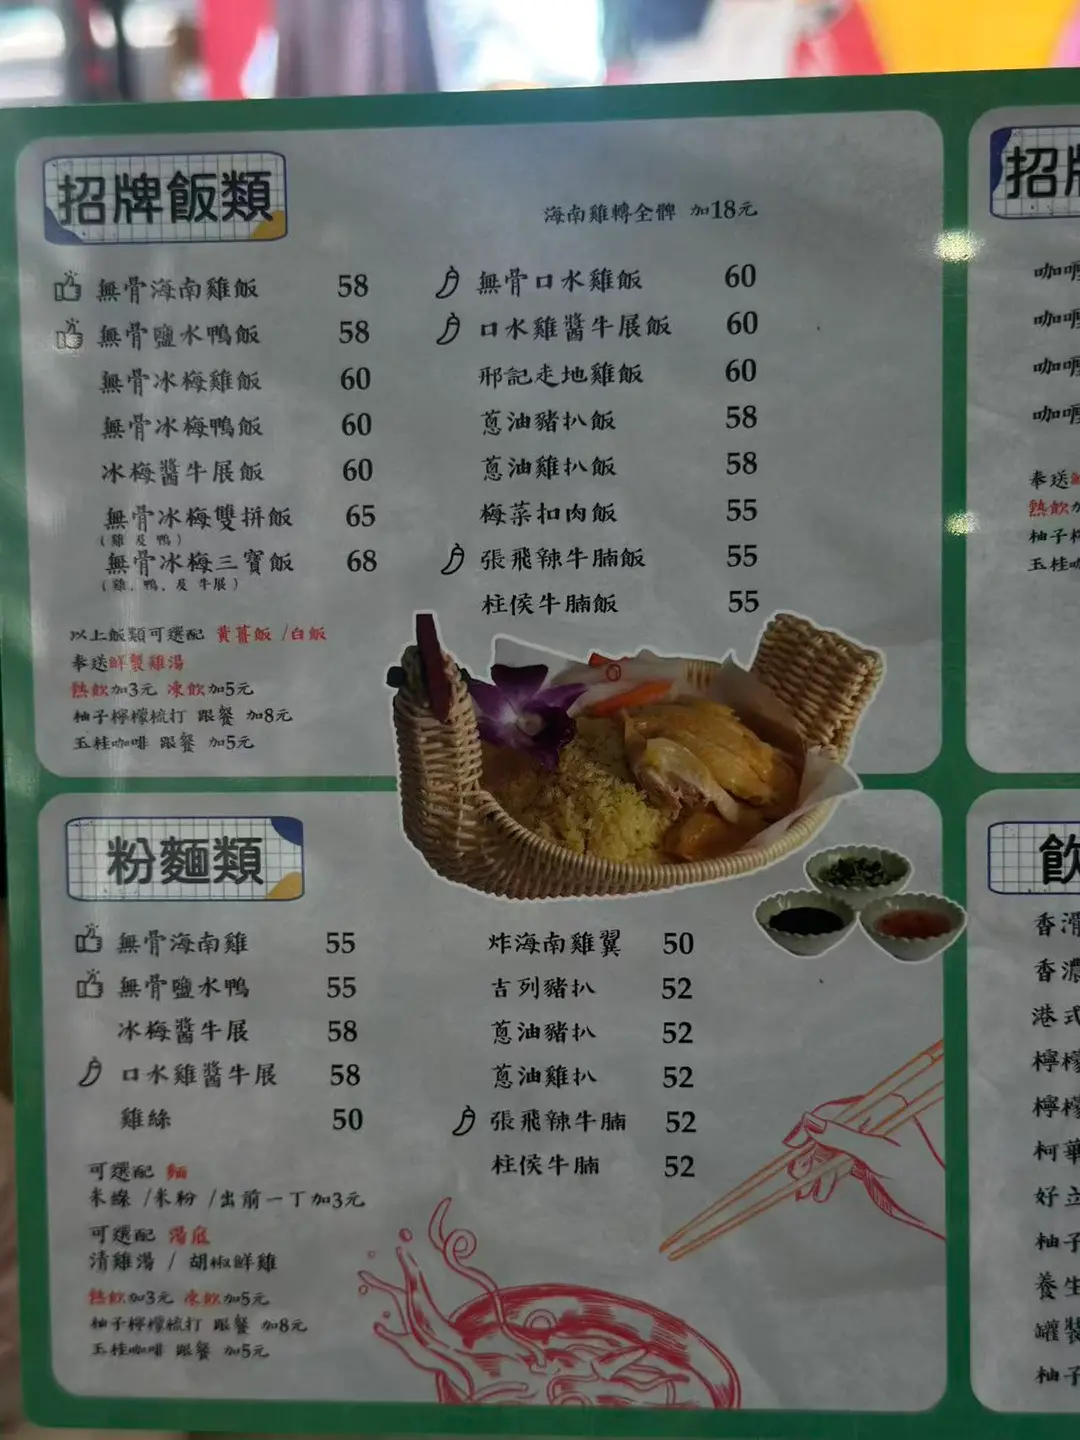 招牌飯類
海南雞轉全髀 加18元
無骨海南雞飯 58
無骨鹽水鴨飯 58
無骨冰梅雞飯 60
無骨冰梅鴨飯 60
冰梅醬牛展飯 60
無骨冰梅雙拼飯 65
(雞及鴨)
無骨冰梅三寶飯 68
(雞,鴨,及 牛展)
無骨口水雞飯 60
口水雞醬牛展飯 60
邢記走地雞飯 60
蔥油豬扒飯 58
蔥油雞扒飯 58
梅菜扣肉飯 55
張飛辣牛腩飯 55
柱侯牛腩飯 55
以上飯類可選配 黃薑飯 /白飯
奉送鮮製雞湯
熱飲加3元 凍飲加5元
柚子檸檬梳打 跟餐 加8元
玉桂咖啡 跟餐 加5元
粉麵類
無骨海南雞 55
無骨鹽水鴨 55
冰梅醬牛展 58
口水雞醬牛展 58
雞絲 50
炸海南雞翼 50
吉列豬扒 52
蔥油豬扒 52
蔥油雞扒 52
張飛辣牛腩 52
柱侯牛腩 52
可選配 麵
米線 /米粉 /出前一丁加3元
可選配 湯底
清雞湯 / 胡椒鮮雞
熱飲加3元 凍飲加5元
柚子檸檬梳打 跟餐 加8元
玉桂咖啡 跟餐 加5元
招
咖
咖
咖
咖
奉送
熱飲
柚子
玉桂
飲
香滑
香濃
港式
檸檬
檸檬
柯華
好立
柚子
養生
罐裝
柚子